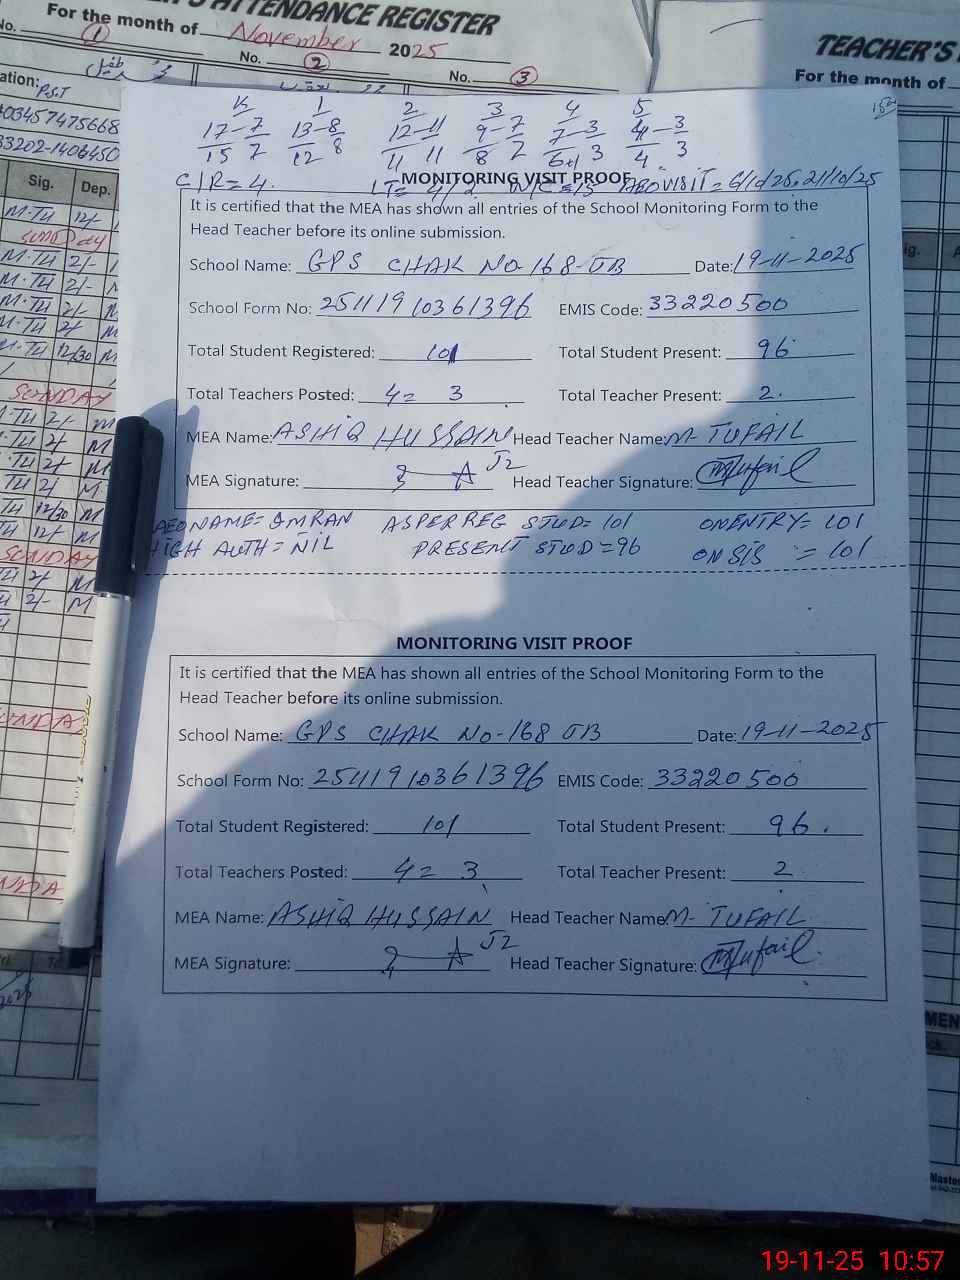 ATTENDANCE REGISTER
For the month of November 2025
No. 1 No. 2 No. 3
TEACHER'S
For the month of
P.S.T
03457475668
33202-1406450
Sig. Dep.
K 1 2 3 4 5
17-7 13-8 12-11 9-7 7-3 4-3
15 7 12 8 11 11 8 7 6+1 3 4 3
C/R=4.
MONITORING VISIT PROOF
It is certified that the MEA has shown all entries of the School Monitoring Form to the
Head Teacher before its online submission.
School Name: GPS CHAK No-168-JB Date: 19-11-2025
School Form No: 25111910361396 EMIS Code: 33220500
Total Student Registered: 101 Total Student Present: 96
Total Teachers Posted: 4= 3 Total Teacher Present: 2.
MEA Name: ASHIQ HUSSAIN Head Teacher Name: M- TUFAIL
MEA Signature: J2 Head Teacher Signature: MTufail
AEO NAME= IMRAN AS PER REG STUD= 101 ON ENTRY= 101
HIGH AUTH= NIL PRESENT STUD=96 ON SIS = 101
MONITORING VISIT PROOF
It is certified that the MEA has shown all entries of the School Monitoring Form to the
Head Teacher before its online submission.
School Name: GPS CHAK No-168 JB Date: 19-11-2025
School Form No: 25111910361396 EMIS Code: 33220500
Total Student Registered: 101 Total Student Present: 96.
Total Teachers Posted: 4= 3 Total Teacher Present: 2
MEA Name: ASHIQ HUSSAIN Head Teacher Name: M- TUFAIL
MEA Signature: J2 Head Teacher Signature: MTufail
19-11-25 10:57